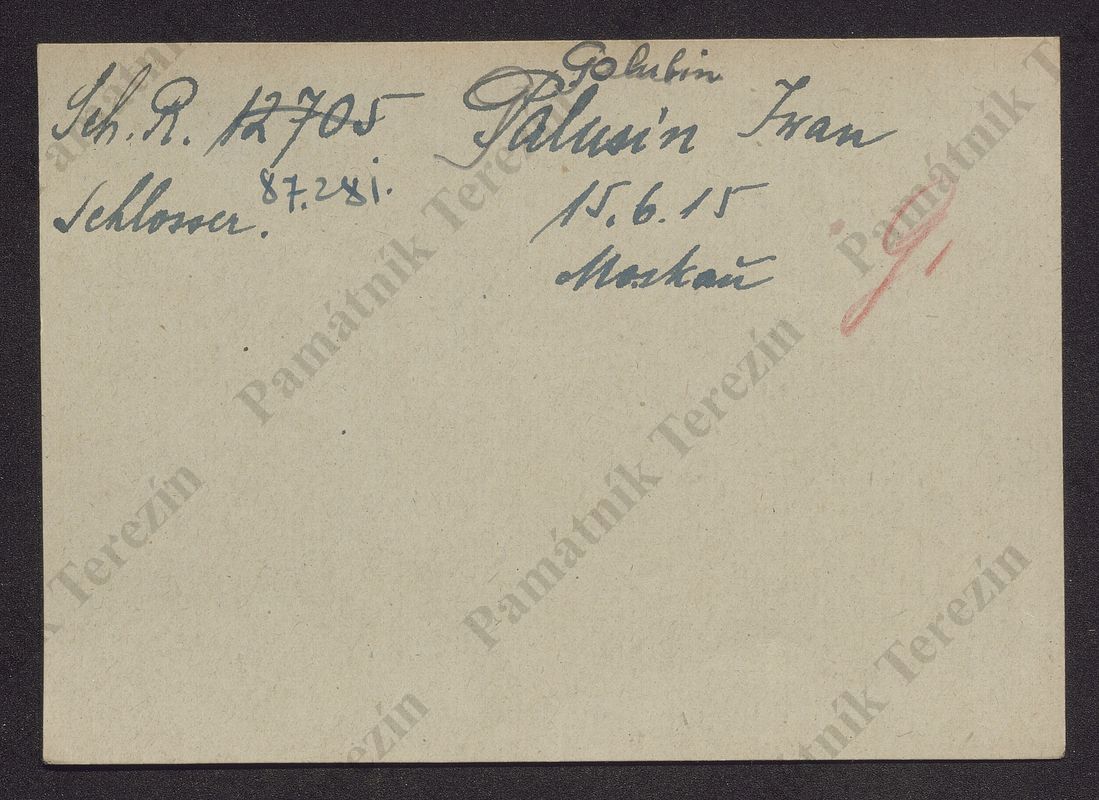 Golubin
Sch. R. 12705 Palusin Iwan
87.281.
Schlosser. 15.6.15
Moskau
g.
Památník Terezín
Památník Terezín
Památník Terezín
Památník Terezín
Památník Terezín
Památník Terezín